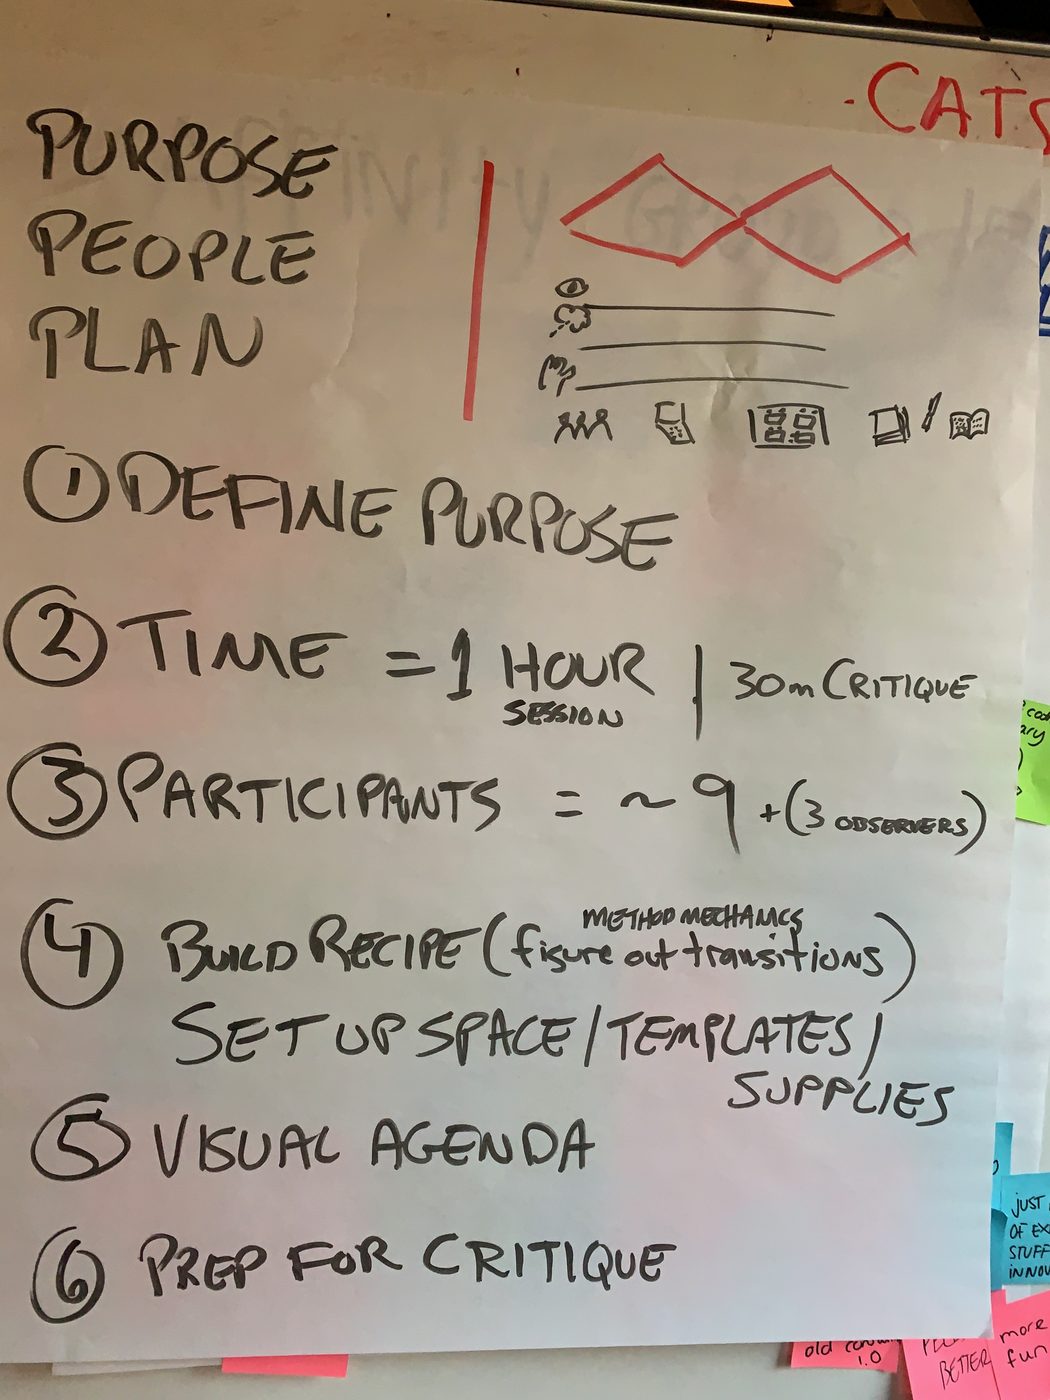 CATS
PURPOSE
PEOPLE
PLAN
1 DEFINE PURPOSE
2 TIME = 1 HOUR | 30m CRITIQUE
SESSION
3 PARTICIPANTS = ~ 9 + (3 OBSERVERS)
METHOD MECHANICS
4 BUILD RECIPE (figure out transitions)
SET UP SPACE / TEMPLATES /
SUPPLIES
5 VISUAL AGENDA
6 PREP FOR CRITIQUE
JUST
OF EX
STUFF
INNOV
old
1.0
BETTER
more
fun